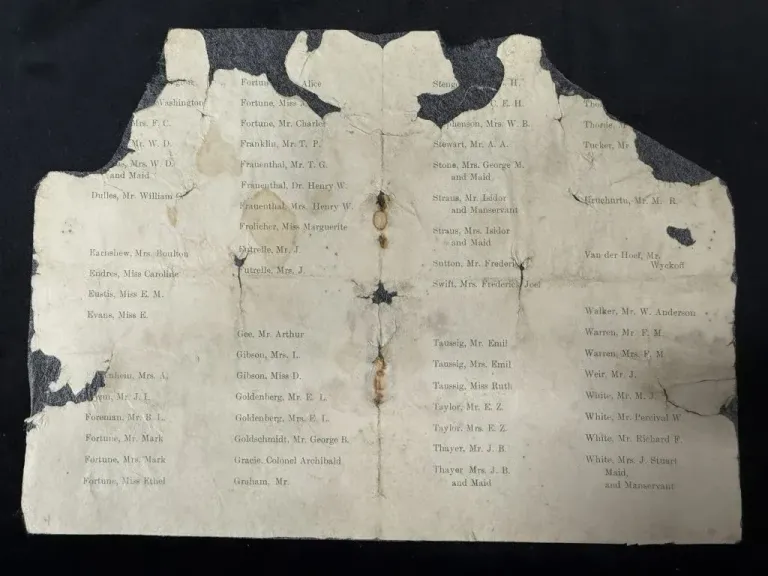 Washington
Mrs. F. C.
Mr. W. D.
Mrs. W. D.
and Maid
Dulles, Mr. William C
Earnshew, Mrs. Boulton
Endres, Miss Caroline
Eustis, Miss E. M.
Evans, Miss E.
Mrs. A.
Mr. J. I.
Foreman, Mr. B. L.
Fortune, Mr. Mark
Fortune, Mrs. Mark
Fortune, Miss Ethel
Fortun Alice
Fortune, Miss
Fortune, Mr. Charles
Franklin, Mr. T. P.
Frauenthal, Mr. T. G.
Frauenthal, Dr. Henry W.
Frauenthal, Mrs. Henry W.
Frolicher, Miss Marguerite
Futrelle, Mr. J.
Futrelle, Mrs. J.
Gee, Mr. Arthur
Gibson, Mrs. L.
Gibson, Miss D.
Goldenberg, Mr. E. L.
Goldenberg, Mrs. E. L.
Goldschmidt, Mr. George B.
Gracie, Colonel Archibald
Graham, Mr.
Steng H.
C. E. H.
phenson, Mrs. W. B.
Stewart, Mr. A. A.
Stone, Mrs. George M.
and Maid
Straus, Mr. Isidor
and Manservant
Straus, Mrs. Isidor
and Maid
Sutton, Mr. Frederick
Swift, Mrs. Frederick Joel
Taussig, Mr. Emil
Taussig, Mrs. Emil
Taussig, Miss Ruth
Taylor, Mr. E. Z.
Taylor, Mrs. E. Z.
Thayer, Mr. J. B.
Thayer, Mrs. J. B.
and Maid
Tho
Thorne, M
Tucker, Mr
Uruchurtu, Mr. M. R.
Van der Hoef, Mr.
Wyckoff
Walker, Mr. W. Anderson
Warren, Mr. F. M.
Warren, Mrs. F. M.
Weir, Mr. J.
White, Mr. M. J.
White, Mr. Percival W.
White, Mr. Richard F.
White, Mrs. J. Stuart
Maid,
and Manservant